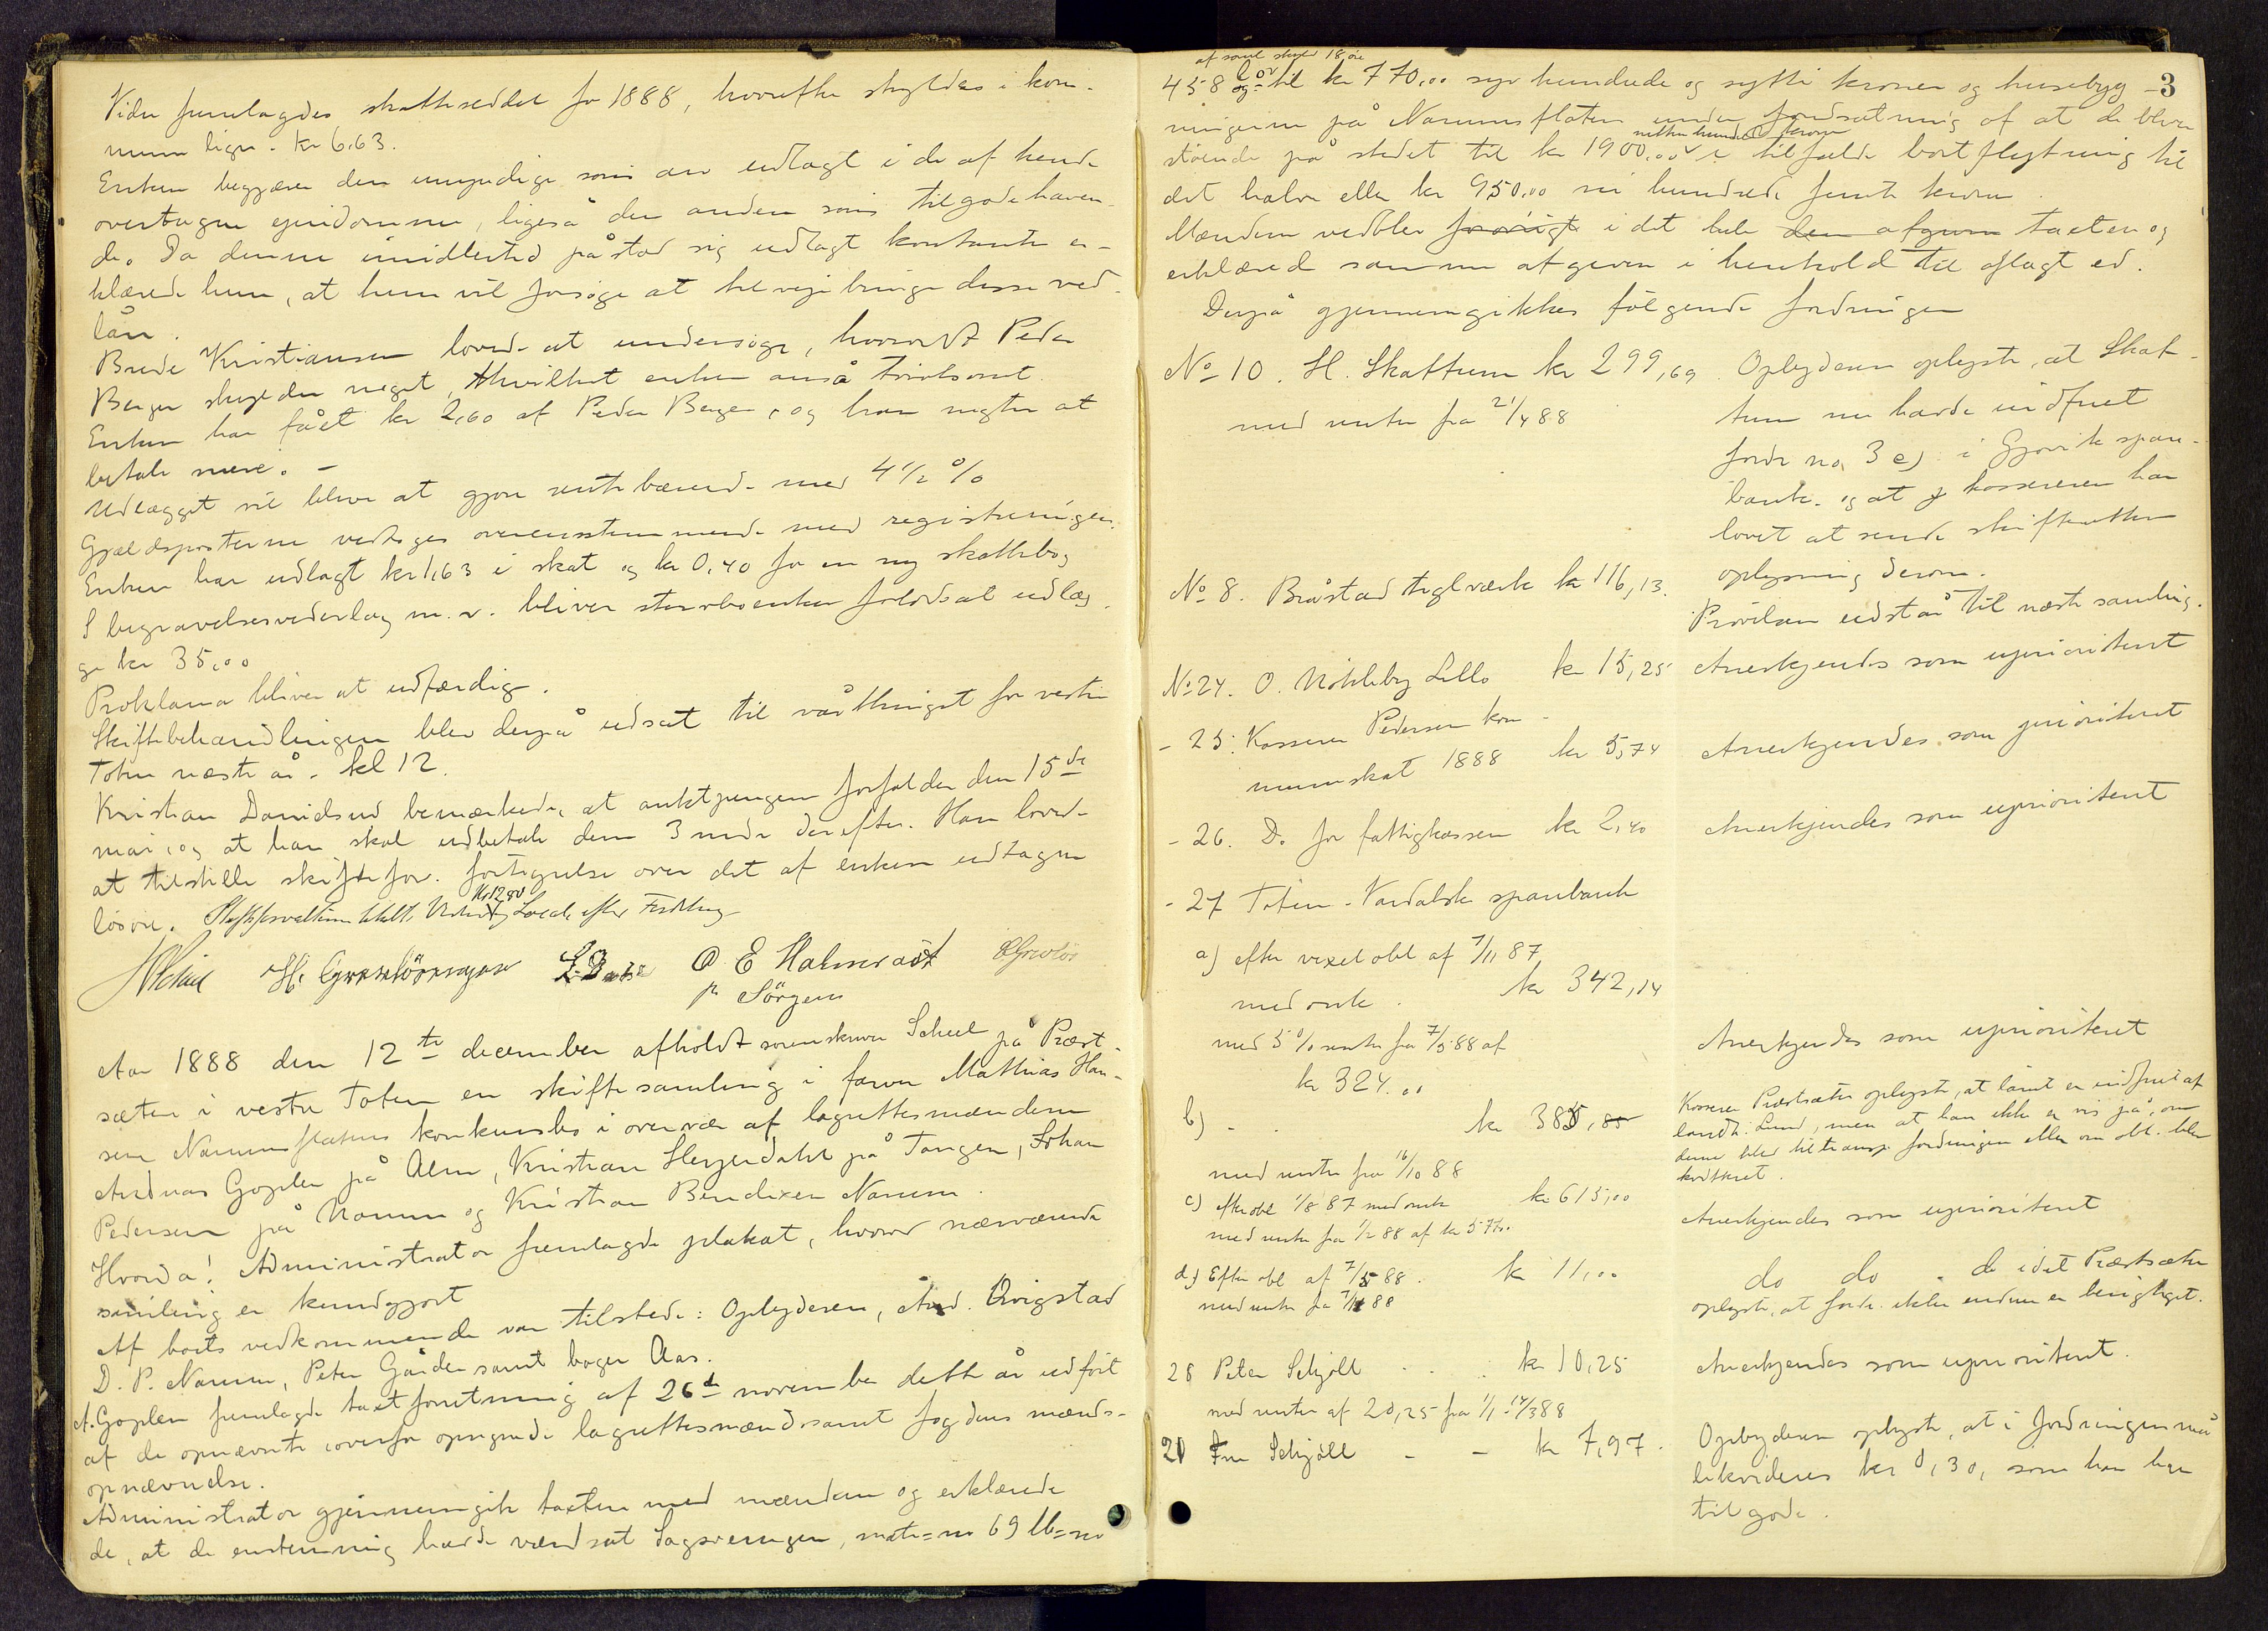 Videre fremlagdes skatteseddel for 1888, hvorefter skyldes i kom-
mune lign. kr 6,63.
Enken begjærer den umyndige søns arv udlagt i de af hende
overtagne ejendomme, ligeså den anden søns tilgodehaven-
de. Da denne imidlertid påstod sig udlagt kontante er-
klærede hun, at hun vil forsøge at tilvejebringe disse ved
lån.
Brede Kristiansen lovede at undersøge, hvorvidt Peder
Berger skylder noget, hvilket enken anså tvivlsomt.
Enken har fået kr 2,60 af Peder Berger, og han negter at
betale mere. -
Udlægget vil blive at gjøre rentebærende med 4 1/2 %
Gjældsposterne vedtoges overensstemmende med registreringen.
Enken har udlagt kr 1,63 i skat og kr 0,40 for en ny skattebog
I begravelsesvederlag m. v. bliver stervboenken forlods at udlæg-
ge kr 35,00
Proklama bliver at udfærdige.
Skiftebehandlingen blev derpå udsat til vårthinget for vestre
Toten næste år. kl 12.
Kristian Danielsrud bemærkede, at auktpengene forfalder den 15de
mai, og at han skal udbetale dem 3 mdr derefter. Han loved-
at tilstille skiftefor. fortegnelse over det af enken udtagne
løsøre.
O. E. Halmrast
p. Sörgens
Aar 1888 den 12te december afholdt sorenskriver Scheel på Præst-
sæter i vestre Toten en skiftesamling i farver Mathias Han-
sen Narumsflatens konkursbo i overvær af lagrettesmændene
Andreas Goplen på Alm, Kristian Heyerdahl på Tangen, Johan
Pedersen på Narum og Kristian Bendixen Narum.
Hvorda! Administrator fremlagde plakat, hvorved nærværende
samling er kundgjort
Af boets vedkommende var tilstede: Opbyderen, And. Qvigstad
D. P. Narum, Peter Gårder samt bager Aas.
A. Goplen fremlagde taxtforretning af 26de november dette år udført
af de opnævnte ovenfor opregnede lagrettesmænd samt fogdens mænds-
opnævnelse.
Administrator gjennemgik taxten med mændene og erklærede
de, at de enstemmig havde værdsat Sagsveningen, matr=no 69 lb=no
3
af samt skyld 18 øre
458 og til kr 770,00 syv hundrede og sytti kroner og husebyg-
ningerne på Narumsflaten under forudsætning af at de bliver
nitten hundrede kroner
stående på stedet til kr 1900,00 i tilfælde bortflytning til
det halve eller kr 950,00 ni hundrede femti kroner.
Mændene vedblev forøvrigt i det hele den afgivne taxten og
erklæred samme afgiven i henhold til aflagt ed.
Derpå gjennemgikkes følgende fordringer
No 10. H. Skattum kr 299,69
med renter fra 21/4 88
Opbyderen oplyste, at Skat-
tum nu havde indfriet
fordr no 3 e) i Gjøvik spare-
bank. og at kassereren har
lovet at sende skifteretten
oplysning derom.
No 8. Bråstad teglværk kr 116,13.
Prøvelsen udstår til næste samling.
No 24. O. Nökleby Lillo kr 15,25
Anerkjendes som uprioriteret
- 25. Kasserer Pedersen kom-
muneskat 1888 kr 5,74
Anerkjendes som prioriteret
- 26. Do for fattigkassen kr 2,40
Anerkjendes som uprioriteret
- 27 Toten-Vardalske sparebank
a) efter vexelobl af 7/11 87
med omk. kr 342,14
med 5 % renter fra 7/5 88 af
kr 324.00
Anerkjendes som uprioriteret
b) - . kr 385,85
med renter fra 16/10 88
Kasserer Præstsæter oplyste, at lånet er indfriet af
landh. Lund, men at han ikke er vis på, om
denne blev tiltransp. fordringen eller om obl. blev
kvitteret.
c) efter obl 1/8 87 med omk kr 615,00
med renter fra 1/2 88 af kr 577,00
Anerkjendes som uprioriteret
d) Efter obl af 7/5 88. kr 11,00
med renter fra 7/11 88
do do - do idet Præstsæter
oplyste, at fordr. ikke endnu er berigtiget.
28 Peter Schjøll . . kr 10,25
med renter af 20,25 fra 1/1 - 14/3 88
Anerkjendes som uprioriteret.
20 Fru Schjøll - - kr 7,97.
Opbyderen oplyste, at i fordringen må
likvideres kr 0,30, som han har
tilgode.